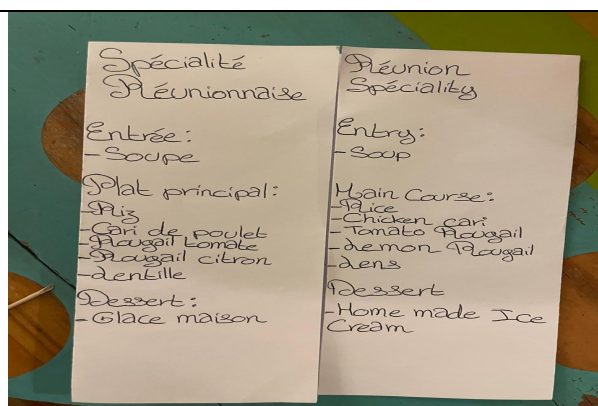 Spécialité
Réunionnaise
Entrée:
- Soupe
Plat principal:
- Riz
- Cari de poulet
- Rougail tomate
- Rougail citron
- Lentille
Dessert:
- Glace maison
Réunion
Spéciality
Entry:
- Soup
Main Course:
- Rice
- Chicken cari
- Tomato Rougail
- Lemon Rougail
- Lens
Dessert
- Home made Ice
Cream